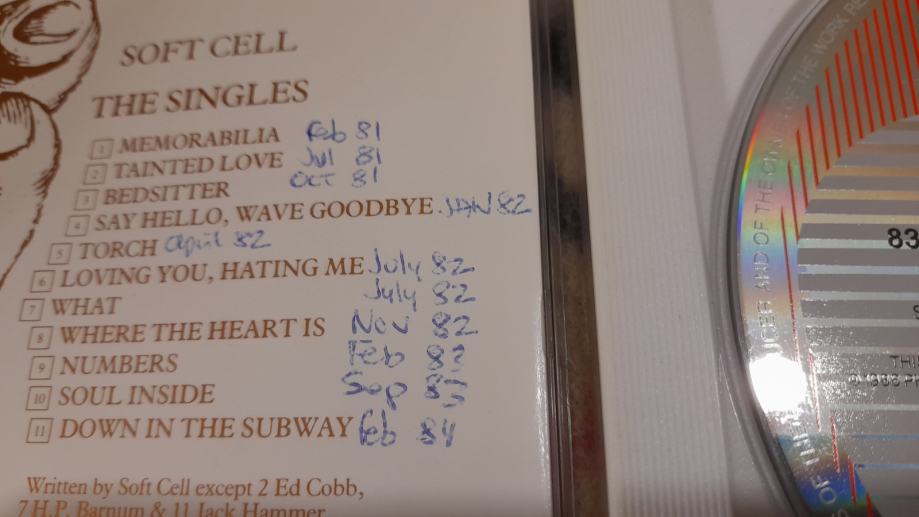 SOFT CELL
THE SINGLES
1 MEMORABILIA Feb 81
2 TAINTED LOVE Jul 81
3 BEDSITTER OCT 81
4 SAY HELLO, WAVE GOODBYE JAN 82
5 TORCH April 82
6 LOVING YOU, HATING ME July 82
7 WHAT July 82
8 WHERE THE HEART IS Nov 82
9 NUMBERS Feb
10 SOUL INSIDE Sep
11 DOWN IN THE SUBWAY Feb 84
Written by Soft Cell except 2 Ed Cobb,
7 H.P. Barnum & 11 Jack Hammer
OF THE WORK RE
AND OF THE
83
THI